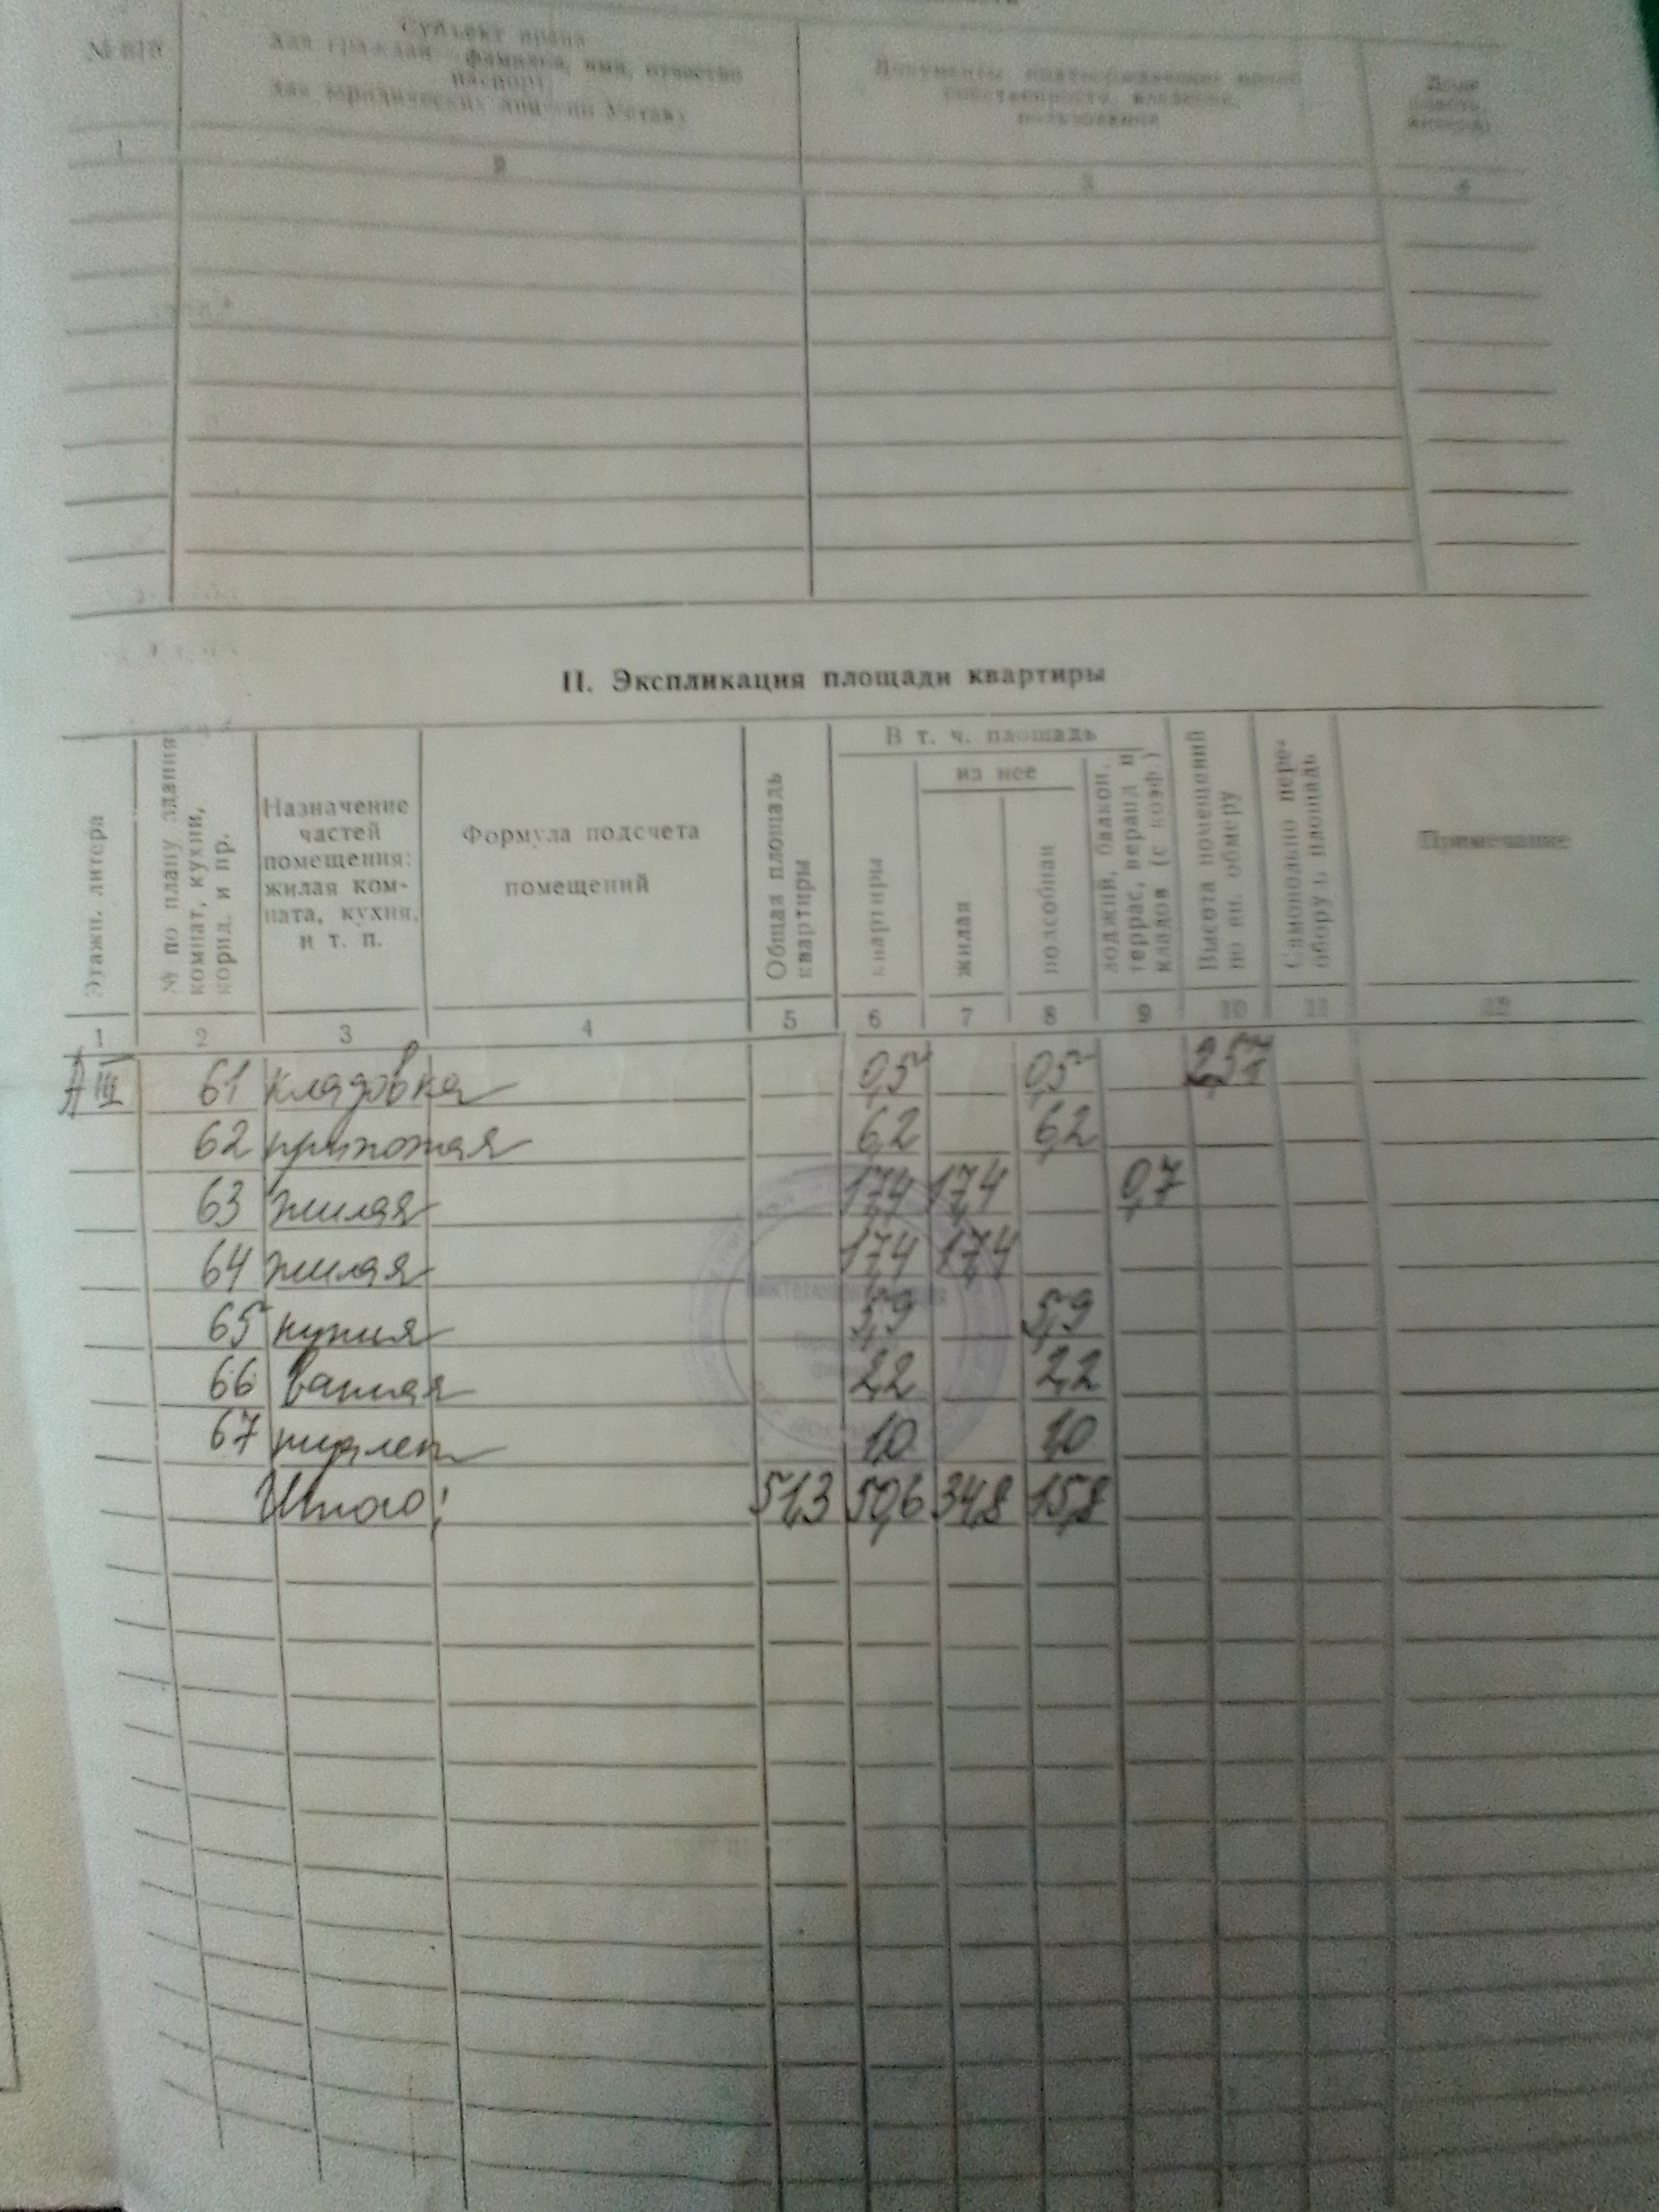 № п/п
Субъект права
для граждан — фамилия, имя, отчество
паспорт,
для юридических лиц — по Уставу
Документы, подтверждающие право
собственности, владения,
пользования
1
2
3
4
II. Экспликация площади квартиры
Этажн. литера
№ по плану здания
комнат, кухни,
корид. и пр.
Назначение
частей
помещения:
жилая ком-
ната, кухня,
и т. п.
Формула подсчета
помещений
Общая площадь
квартиры
В т. ч. площадь
квартиры
из нее
жилая
подсобная
лоджий, балкон.
террас, веранд и
кладов (с коэф.)
Высота помещений
по вн. обмеру
Самовольно пере-
обору . площадь
Примечание
1 2 3 4 5 6 7 8 9 10 11 12
А III 61 кладовка 0,5 0,5 2,57
62 прихожая 6,2 6,2
63 жилая 17,4 17,4 0,7
64 жилая 17,4 17,4
65 кухня 5,9 5,9
66 ванная 2,2 2,2
67 туалет 1,0 1,0
Итого: 51,3 50,6 34,8 15,8